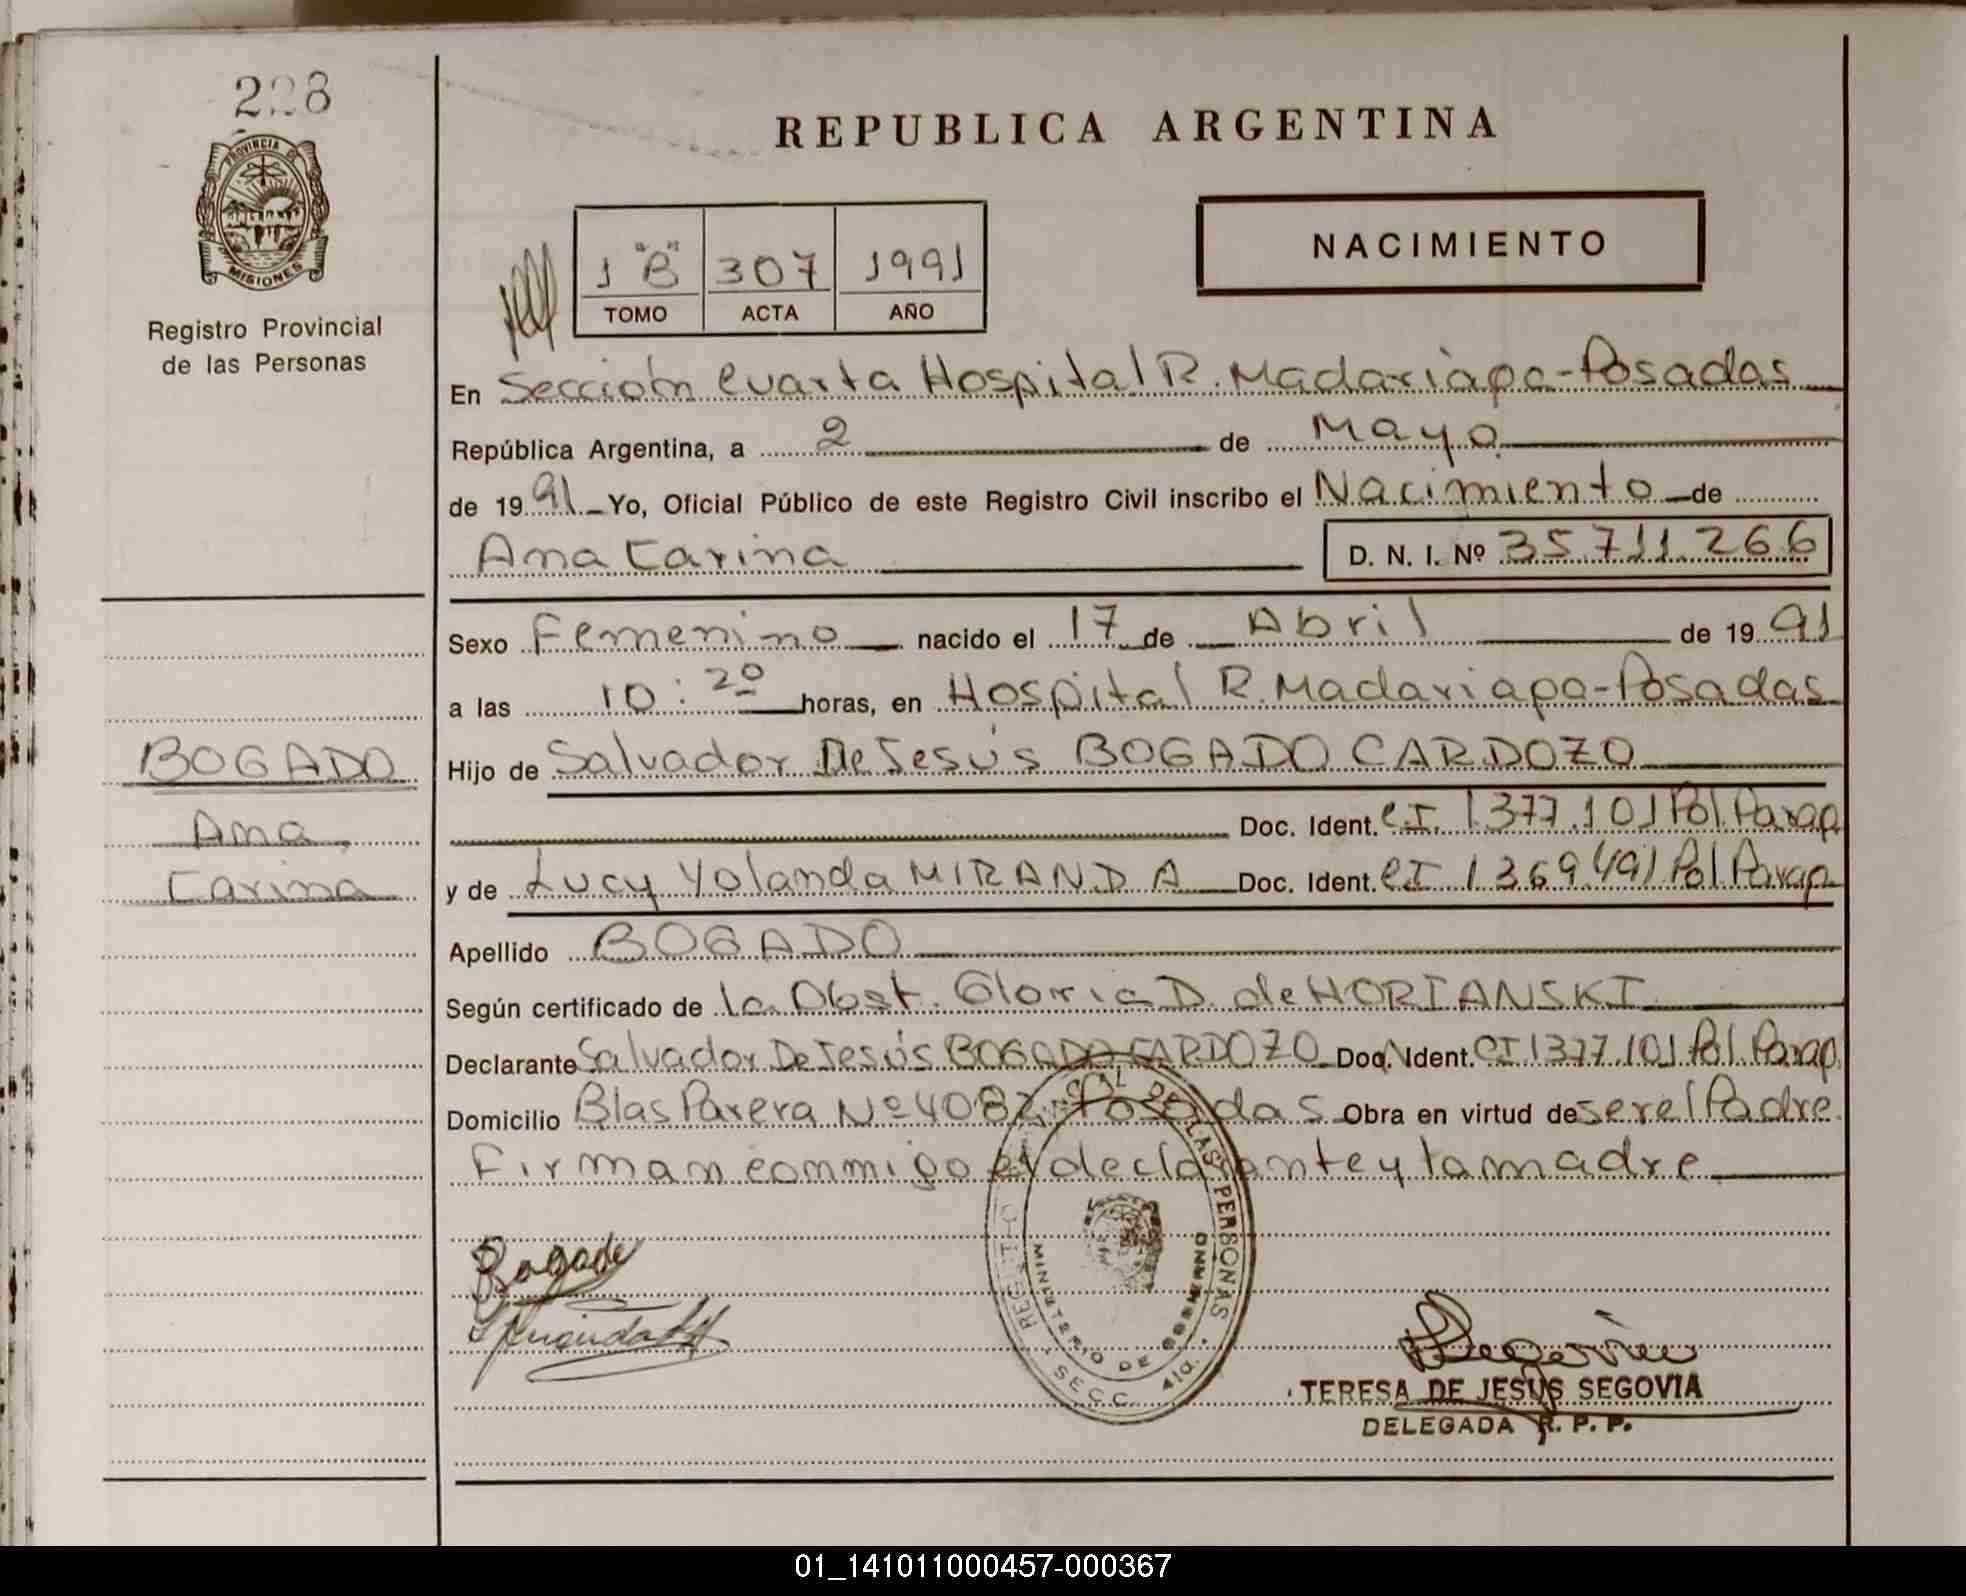 228
PROVINCIA DE
MISIONES
Registro Provincial
de las Personas
REPUBLICA ARGENTINA
1 "B" 307 1991
TOMO ACTA AÑO
NACIMIENTO
En Sección Cuarta Hospital R. Madariaga-Posadas
República Argentina, a 2 de Mayo
de 1991 Yo, Oficial Público de este Registro Civil inscribo el Nacimiento de
Ana Carina D. N. I. Nº 35.711.266
Sexo Femenino nacido el 17 de Abril de 1991
a las 10:20 horas, en Hospital R. Madariaga-Posadas
BOGADO
Ana
Carina
Hijo de Salvador De Jesús BOGADO CARDOZO
Doc. Ident. CI 1377.101 Pol. Parag
y de Lucy Yolanda MIRANDA Doc. Ident. CI 1369491 Pol Parag
Apellido BOGADO
Según certificado de la Obst. Gloria D. de HORIANSKI
Declarante Salvador De Jesús BOGADO CARDOZO Doc. Ident. CI 1377.101 Pol. Parag
Domicilio Blas Parera Nº 4082 Posadas Obra en virtud de ser el Padre
Firman conmigo el declarante y la madre
Bogado
REGISTRO PROVINCIAL DE LAS PERSONAS
MINISTERIO DE GOBIERNO
SECC. 4ta.
TERESA DE JESÚS SEGOVIA
DELEGADA R. P. P.
01_141011000457-000367